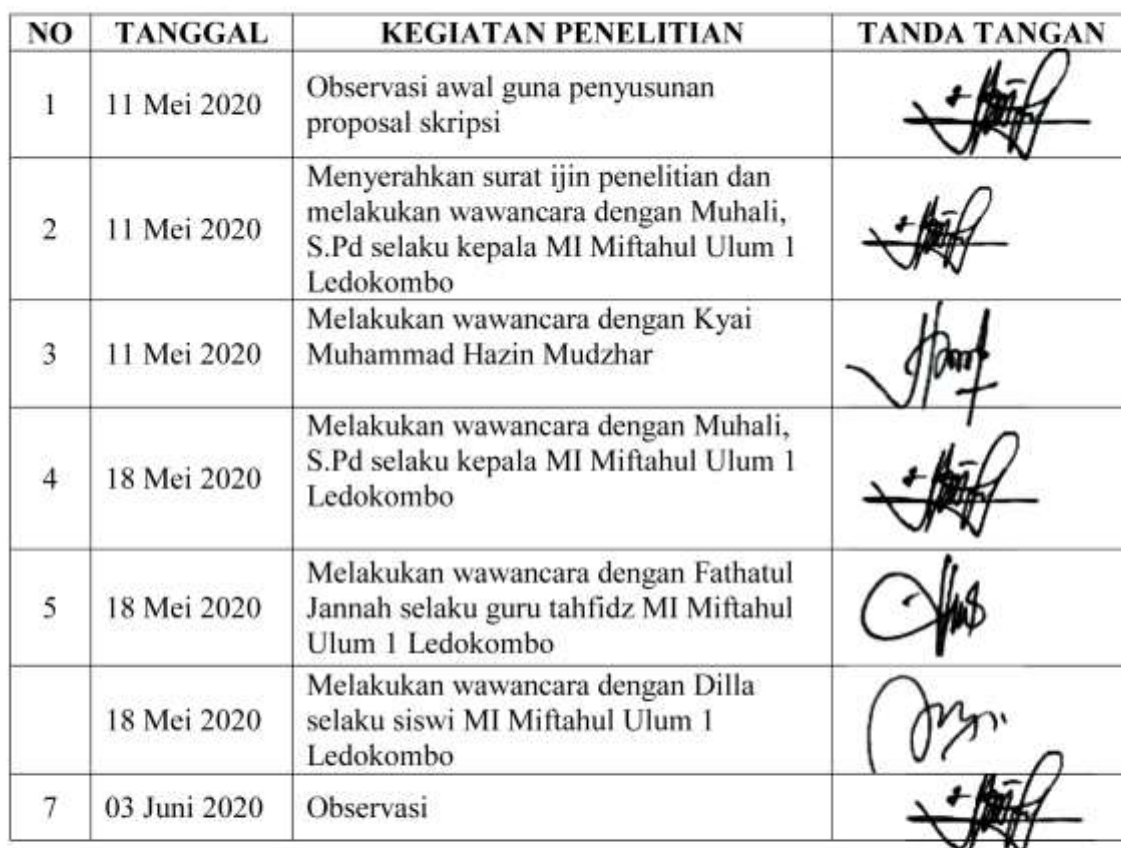 NO TANGGAL KEGIATAN PENELITIAN TANDA TANGAN
1 11 Mei 2020 Observasi awal guna penyusunan
proposal skripsi
2 11 Mei 2020 Menyerahkan surat ijin penelitian dan
melakukan wawancara dengan Muhali,
S.Pd selaku kepala MI Miftahul Ulum 1
Ledokombo
3 11 Mei 2020 Melakukan wawancara dengan Kyai
Muhammad Hazin Mudzhar
4 18 Mei 2020 Melakukan wawancara dengan Muhali,
S.Pd selaku kepala MI Miftahul Ulum 1
Ledokombo
5 18 Mei 2020 Melakukan wawancara dengan Fathatul
Jannah selaku guru tahfidz MI Miftahul
Ulum 1 Ledokombo
18 Mei 2020 Melakukan wawancara dengan Dilla
selaku siswi MI Miftahul Ulum 1
Ledokombo
7 03 Juni 2020 Observasi